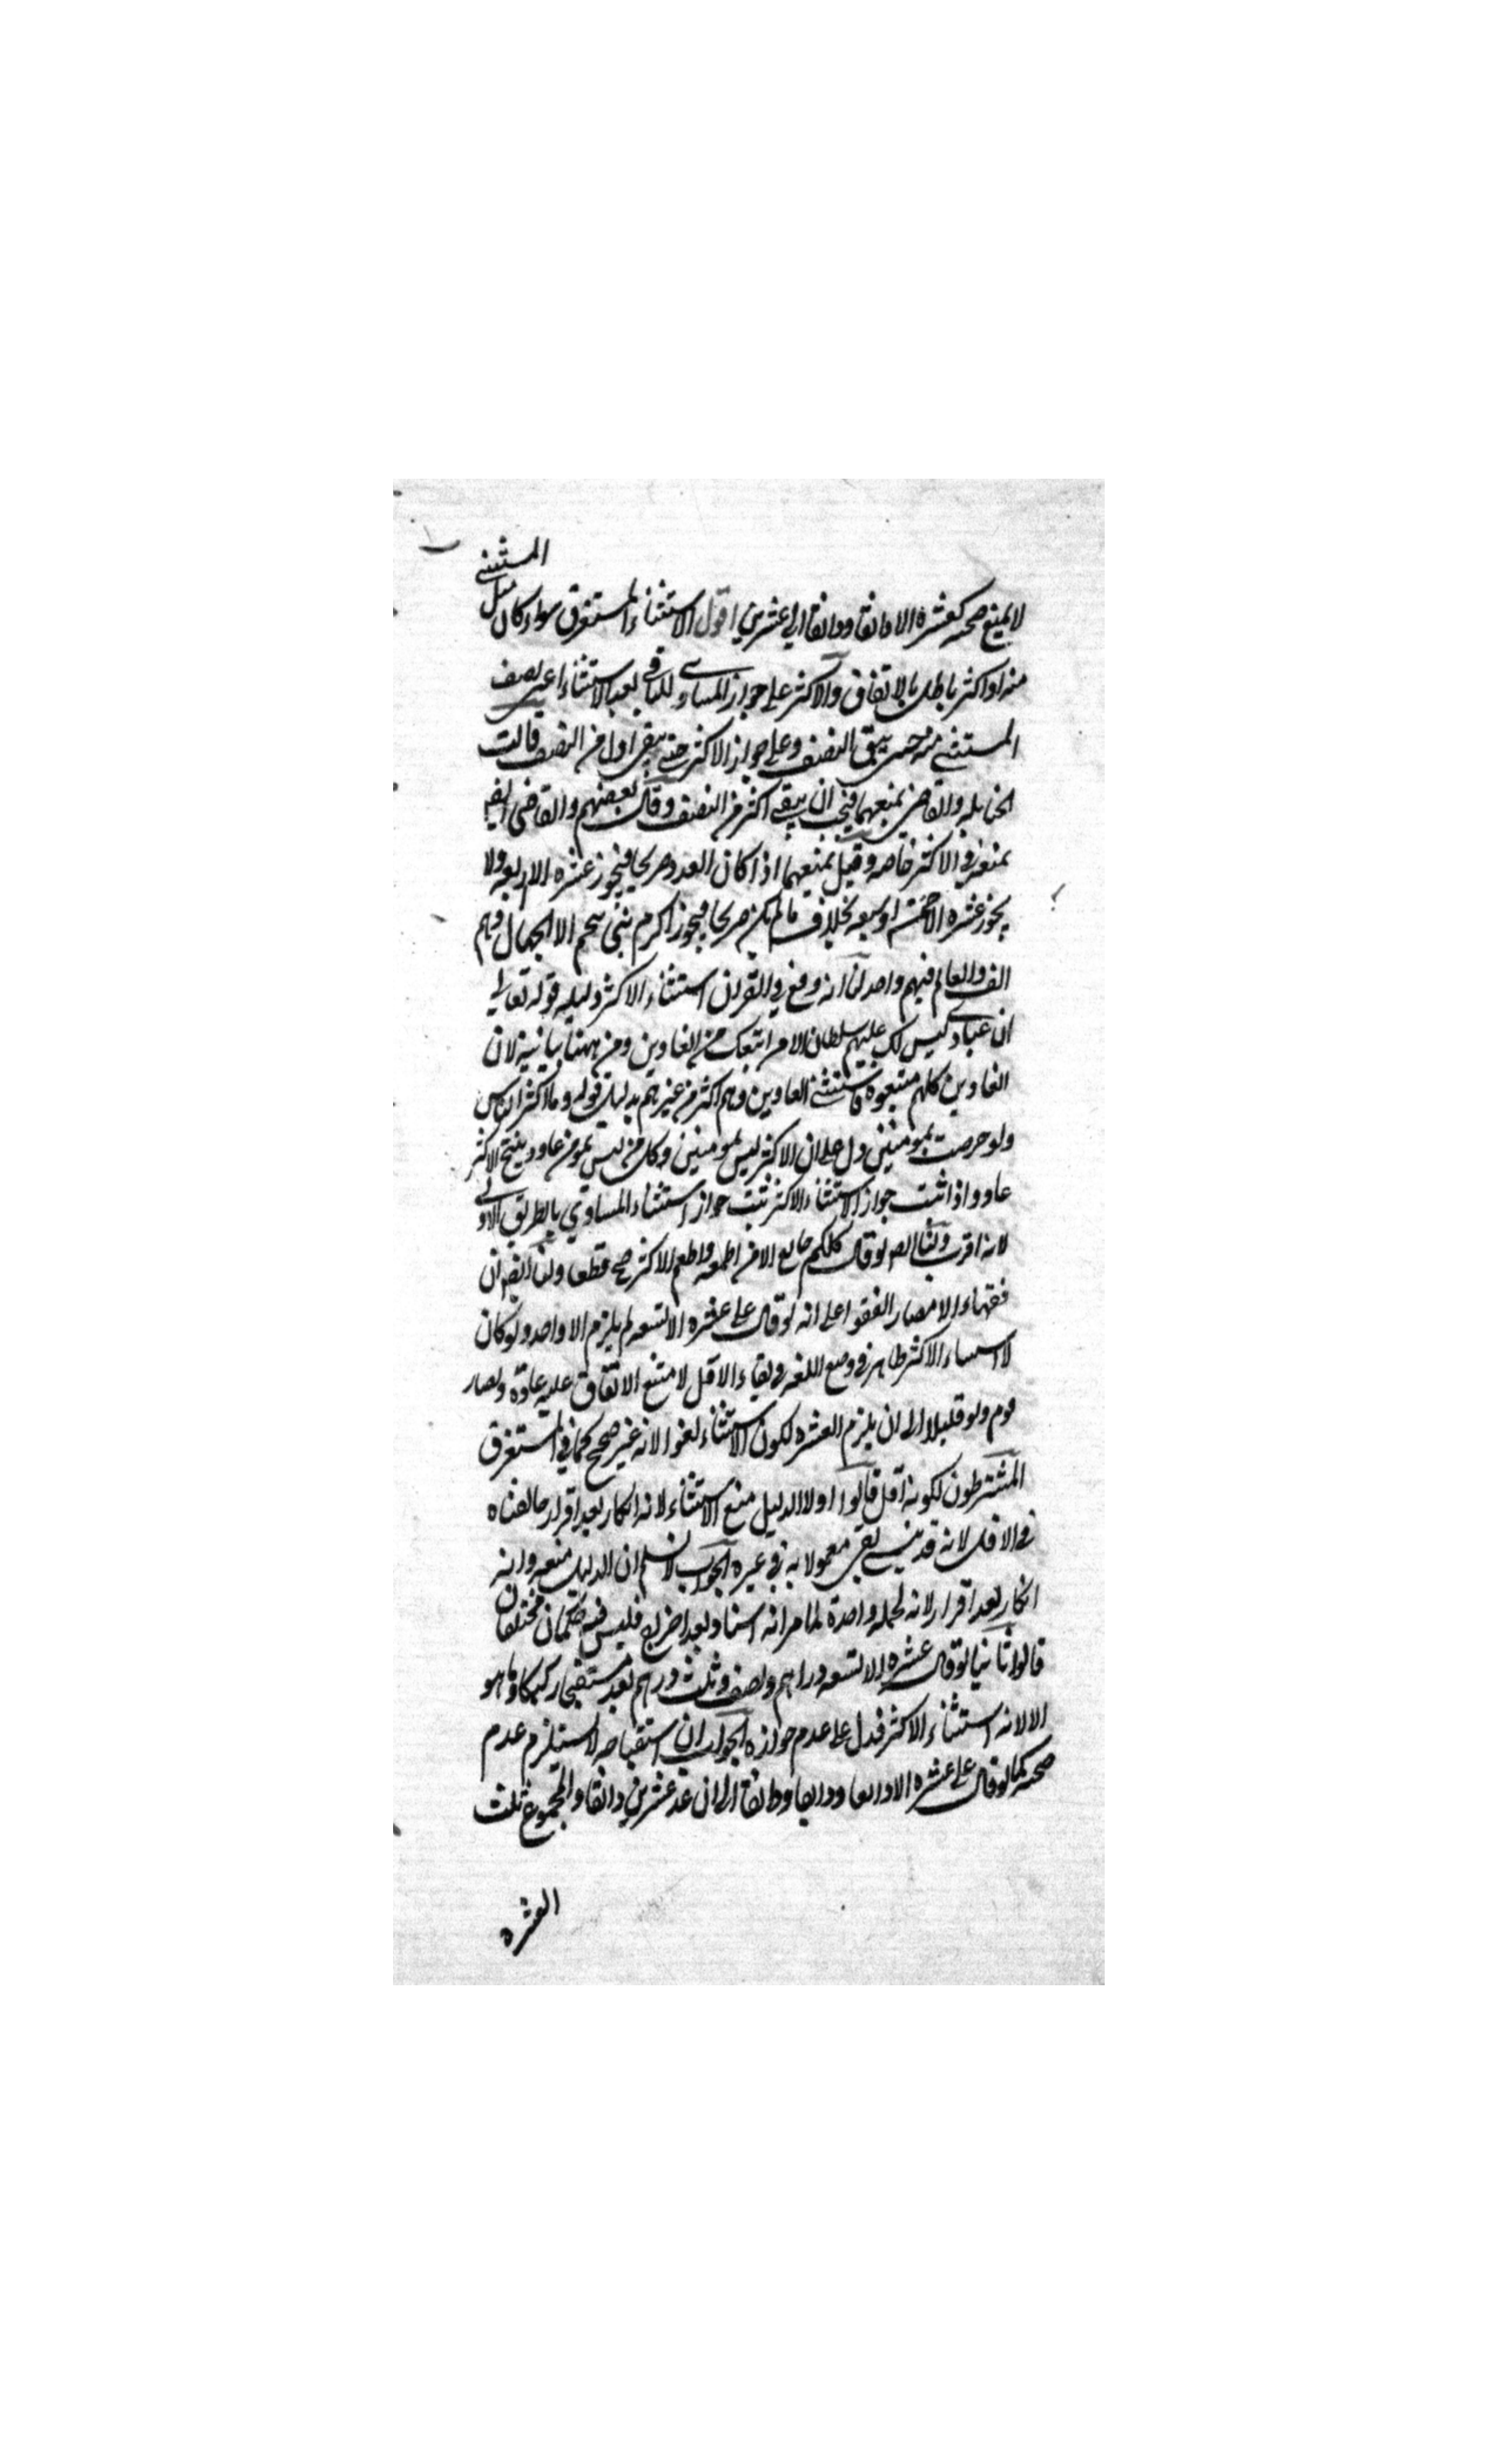 المستثنى
لا يمنع صحته كعشره الا دانقا ودانقا الى عشرين اقول الاستثناء المستغرق سواء كان مثل
منه او اكثر باطل بالاتفاق والاكثر على جواز المساوى للباقى بعد الاستثناء اعنى نصف
المستثنى منه حتى يبقى النصف وعلى جواز الاكثر حتى يبقى اقل من النصف قالت
الحنابله والقاضى بمنعهما فيجب ان يبقى اكثر من النصف وقال بعضهم والقاضى ايضا
بمنعه فى الاكثر خاصه وقيل بمنعهما اذا كان العدد صريحا فيجوز عشره الا اربعه ولا
يجوز عشره الا خمسه او سبعه بخلاف مالم يكن صريحا فيجوز اكرم بنى تميم الا الجهال وهم
الف والعالم فيهم واحد لنا انه وقع فى القران استثناء الاكثر دليله قوله تعالى
ان عبادى ليس لك عليهم سلطان الا من اتبعك من الغاوين ومن ههنا بيانية لان
الغاوين كلهم متبعوه فاستثنى الغاوين وهم اكثر من غيرهم بدليل قوله وما اكثر الناس
ولو حرصت بمومنين دل على ان الاكثر ليس بمومنين وكل من ليس بمومن غاو وينتج الاكثر
غاو واذا ثبت جواز الاستثناء الاكثر ثبت جواز استثناء المساوي بالطريق الاولى
لانه اقرب ولنا ايضا لو قال كلكم جايع الا من اطعمته واطعم الاكثر صح قطعا ولنا ايضا ان
فقهاء الامصار اتفقوا على انه لو قال على عشره الا تسعه لم يلزم الا واحد ولو كان
لا استثناء الاكثر ظاهر فى وضع اللغه فى بقاء الاقل لامتنع الاتفاق عليه عادة ولصار
قوم ولو قليلا الى ان يلزم العشره لكون الاستثناء لغوا لانه غير صحيح كما فى المستغرق
المشترطون لكونه اقل قالوا اولا الدليل منع الاستثناء لانه انكار بعد اقرار خالفناه
فى الاقل لانه قد ينسى بقى معمولا به فى غيره الجواب لا نسلم ان الدليل منعه وانه
انكار بعد اقرار لانه لجمله واحدة لما مر انه اسناد بعد اخراج فليس فيه حكمان مختلفان
قالوا ثانيا لو قال عشره الا تسعه دراهم ونصف وثلث درهم يعد مستقبحا ركيكا وما هو
الا لانه استثناء الاكثر فدل على عدم جوازه الجواب ان استقباحه لا يستلزم عدم
صحته كما لو قال على عشره الا دانقا ودانقا ودانقا الى ان عد عشرين دانقا والمجموع ثلث
العشره